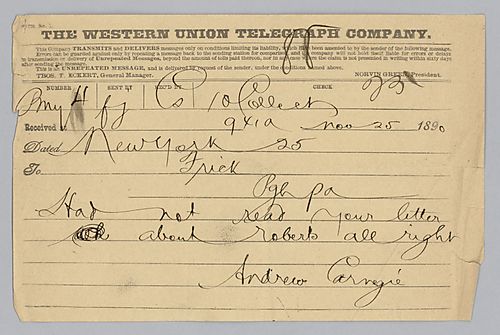 THE WESTERN UNION TELEGRAPH COMPANY.
This Company TRANSMITS and DELIVERS messages only on conditions limiting its liability, which have been assented to by the sender of the following message.
Errors can be guarded against only by repeating a message back to the sending station for comparison, and the company will not hold itself liable for errors or delays
in transmission or delivery of Unrepeated Messages, beyond the amount of tolls paid thereon, nor in any case where the claim is not presented in writing within sixty days
after sending the message.
This is an UNREPEATED MESSAGE, and is delivered by request of the sender, under the conditions named above.
THOS. T. ECKERT, General Manager. NORVIN GREEN, President.
NUMBER SENT BY REC'D BY CHECK
10 Collect
Received at 941a Nov 25 1890
Dated New York 25
To Frick
Pgh pa
Had not read your letter
about roberts all right
Andrew Carnegie